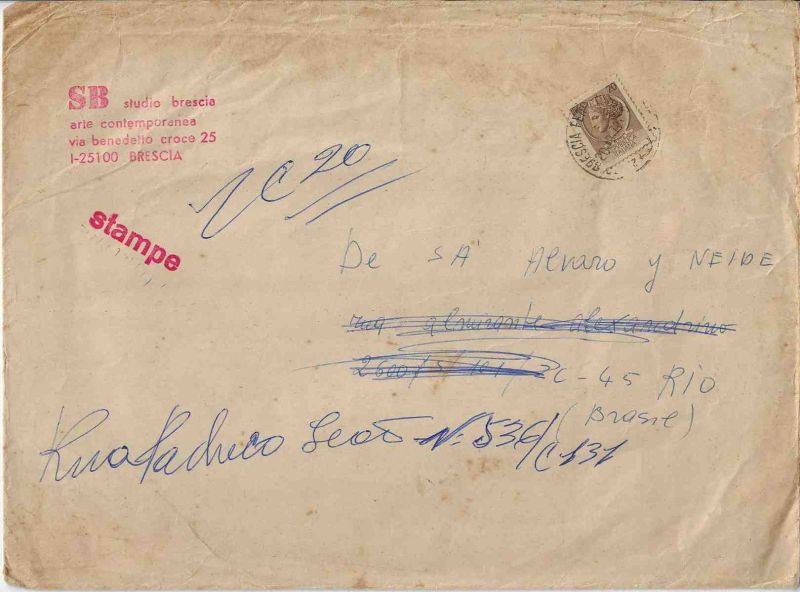 SB studio brescia
arte contemporanea
via benedetto croce 25
I-25100 BRESCIA
C 20
stampe
De SA' Alvaro y NEIDE
rua almirante alexandrino
2600/S/101/ZC-45 RIO
(Brasil)
Rua Pacheco Leão Nº 536/C131